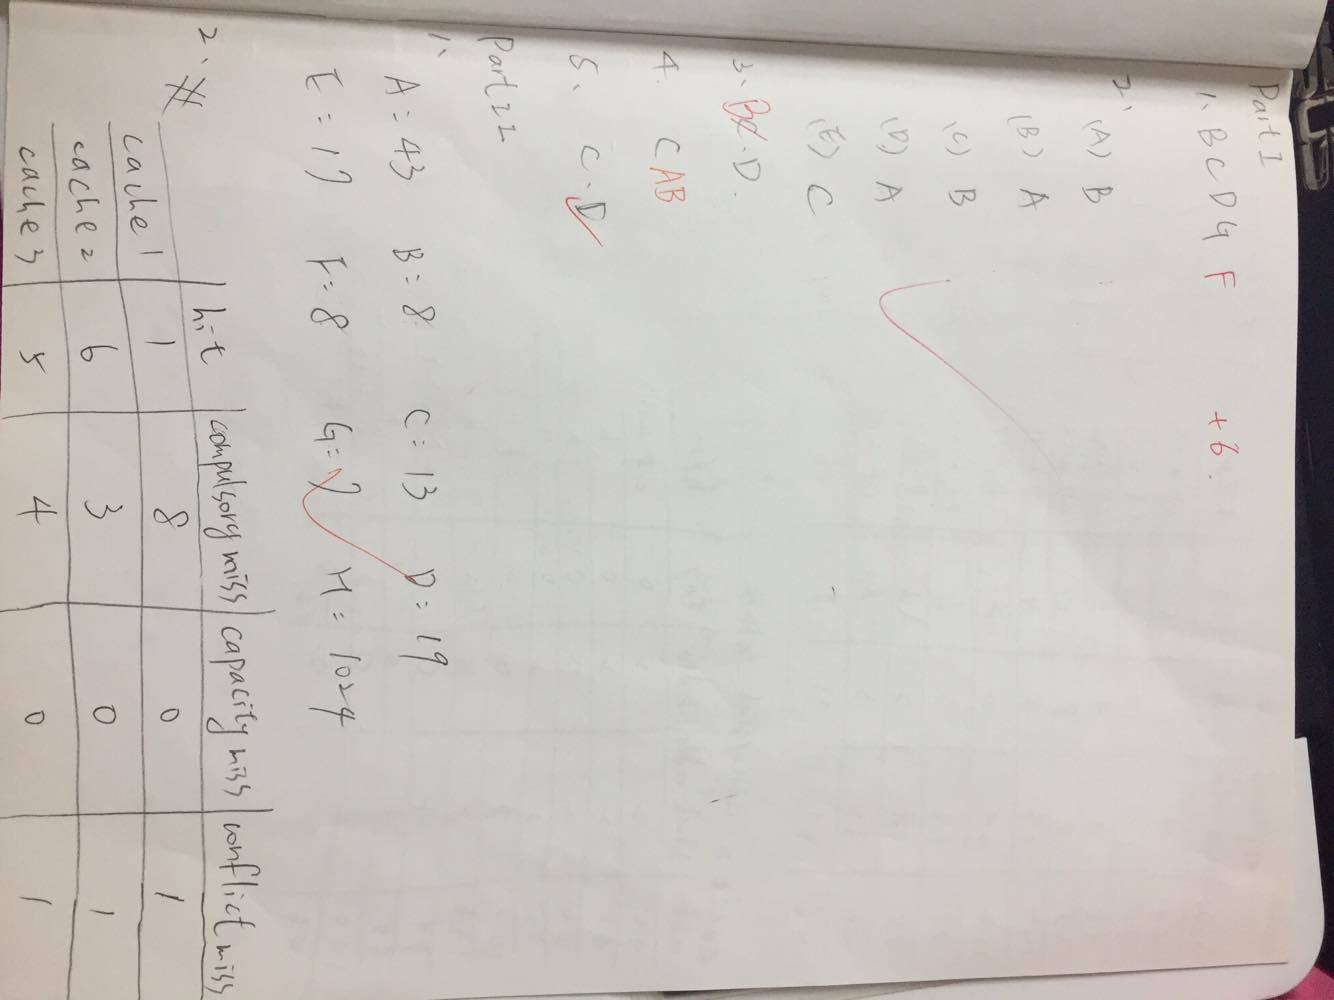 Part I
1、B C D G F +6.
2、
(A) B
(B) A
(C) B
(D) A
(E) C
3、B C . D.
4. C A B
5、 C . D
Part II
1、
A = 43 B = 8 C = 13 D = 19
E = 17 F = 8 G = 7 H = 1024
2、
hit compulsory miss capacity miss conflict miss
cache 1 1 8 0 1
cache 2 6 3 0 1
cache 3 5 4 0 1